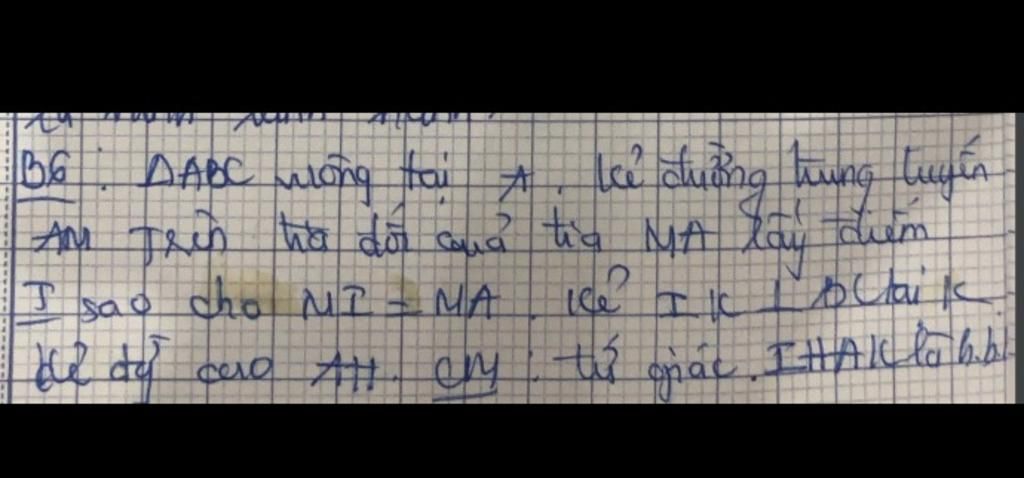 B6: ΔABC vuông tại A. Kẻ đường trung tuyến
AM Trên tia đối của tia MA lấy điểm
I sao cho MI = MA. Kẻ IK ⊥ BC tại K
kẻ đg cao AH. CM: tứ giác IHAK là h.b.h